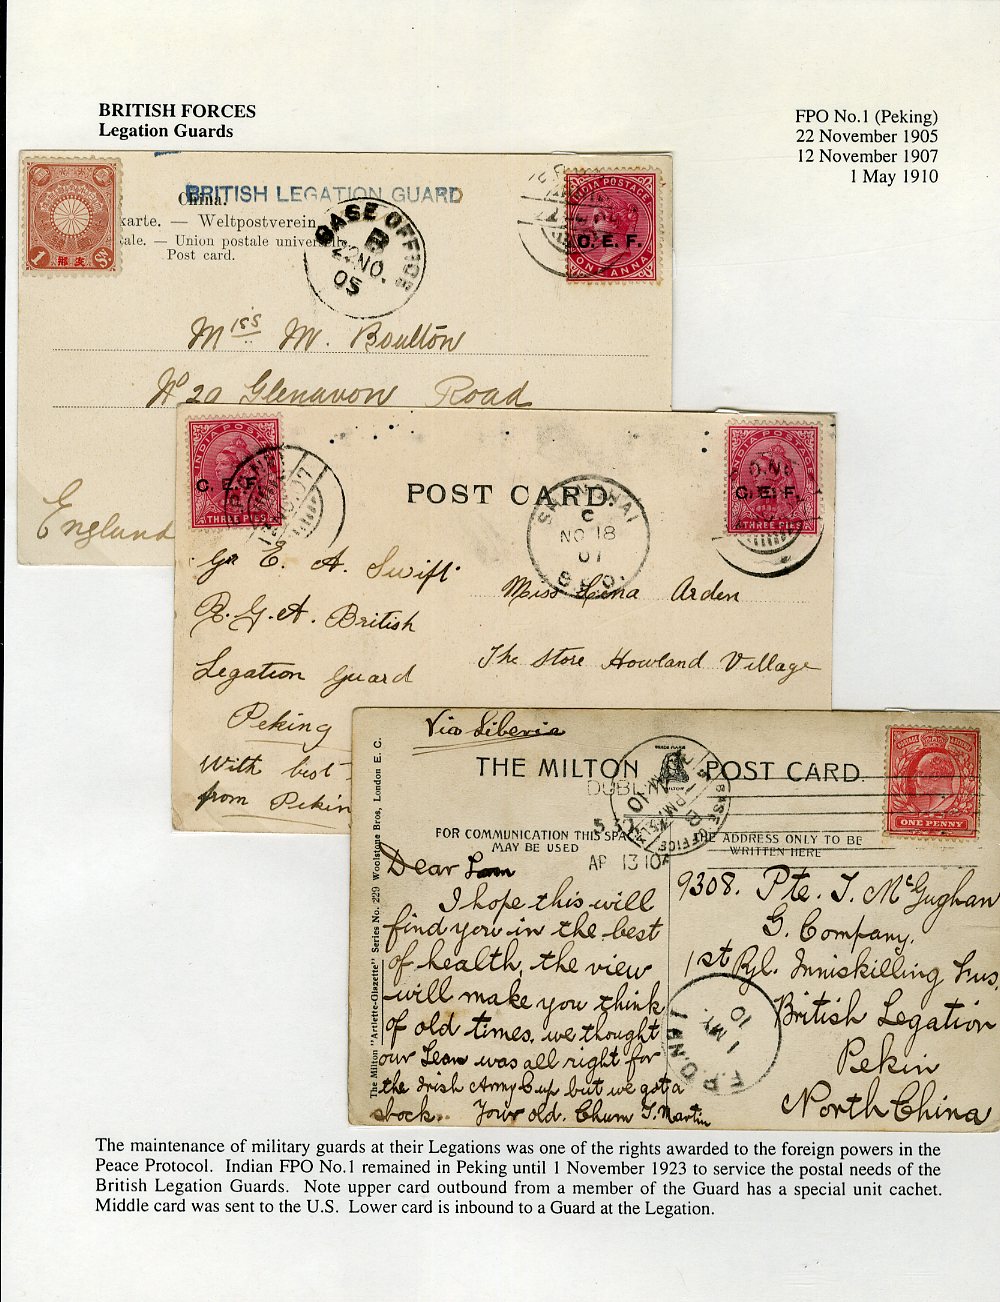 BRITISH FORCES
Legation Guards
FPO No.1 (Peking)
22 November 1905
12 November 1907
1 May 1910
BRITISH LEGATION GUARD
China.
karte. — Weltpostverein
ale. — Union postale universelle
Post card.
1
支那
BASE OFFICE
B
22 NO.
05
INDIA POSTAGE
C. E. F.
ONE ANNA
Miss M. Boulton
No 29 Glenavon Road
England
INDIA POSTAGE
C. E. F.
THREE PIES
POST CARD.
SHANGHAI
C
NO 18
07
B.P.O.
INDIA POSTAGE
C. E. F.
THREE PIES
Gr E. A. Swift
R.G.A. British
Legation Guard
Peking
With best
from Pekin
Miss Lena Arden
The Store Howland Village
Via Siberia
THE MILTON POST CARD.
DUBLIN
5 30
AP 13 10
BASE OFFICE
B
ONE PENNY
FOR COMMUNICATION THIS SPACE
MAY BE USED
THE ADDRESS ONLY TO BE
WRITTEN HERE
The Milton "Artlette-Glazette" Series No. 229 Woolstone Bros, London E. C.
Dear
I hope this will
find you in the best
of health, the view
will make you think
of old times, we thought
our was all right for
the Irish Army Cup but we got a
shock. Your old. Chum J. Martin
9308. Pte. J. McGughan
G. Company.
1st Ryl. Inniskilling Fus.
British Legation
Pekin
North China
F.P.O. No 1
1 MY.
10
The maintenance of military guards at their Legations was one of the rights awarded to the foreign powers in the
Peace Protocol. Indian FPO No.1 remained in Peking until 1 November 1923 to service the postal needs of the
British Legation Guards. Note upper card outbound from a member of the Guard has a special unit cachet.
Middle card was sent to the U.S. Lower card is inbound to a Guard at the Legation.